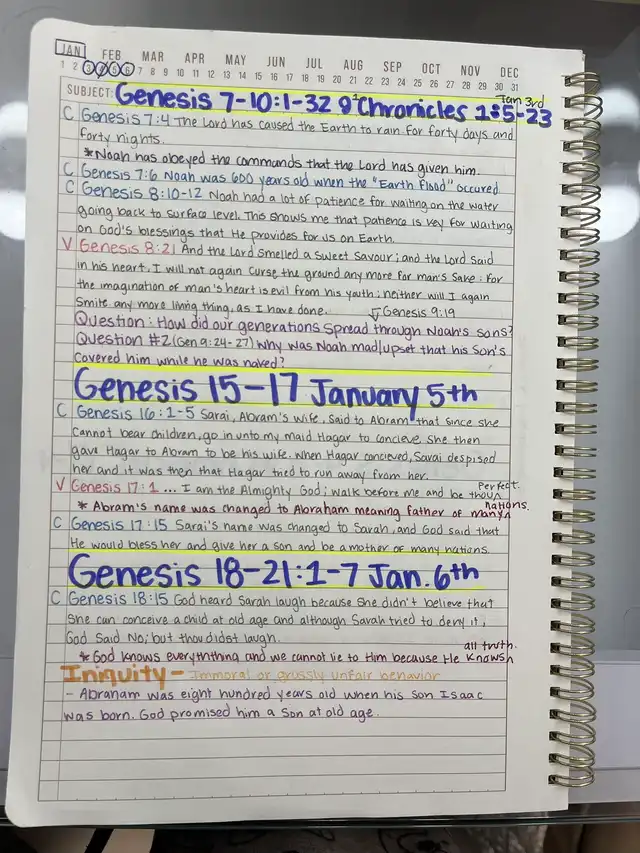 JAN FEB MAR APR MAY JUN JUL AUG SEP OCT NOV DEC
1 2 3 4 5 6 7 8 9 10 11 12 13 14 15 16 17 18 19 20 21 22 23 24 25 26 27 28 29 30 31
SUBJECT: Genesis 7-10:1-32 & 1 Chronicles 1:5-23 Jan 3rd
C Genesis 7:4 The Lord has caused the Earth to rain for forty days and
forty nights.
* Noah has obeyed the commands that the Lord has given him.
C Genesis 7:6 Noah was 600 years old when the "Earth flood" occured
C Genesis 8:10-12 Noah had a lot of patience for waiting on the water
going back to surface level. This shows me that patience is key for waiting
on God's blessings that He provides for us on Earth.
V Genesis 8:21 And the Lord smelled a sweet savour; and the Lord said
in his heart, I will not again curse the ground any more for man's sake: for
the imagination of man's heart is evil from his youth; neither will I again
smite any more living thing, as I have done.
Genesis 9:19
Question: How did our generations spread through Noah's sons?
Question #2 (Gen 9:24-27) Why was Noah mad/upset that his Son's
covered him while he was naked?
Genesis 15-17 January 5th
C Genesis 16:1-5 Sarai, Abram's wife, said to Abram that since she
cannot bear children, go in unto my maid Hagar to concieve. She then
gave Hagar to Abram to be his wife. When Hagar concieved, Sarai despised
her and it was then that Hagar tried to run away from her.
V Genesis 17:1 ... I am the Almighty God; walk before me and be thou perfect.
* Abram's name was changed to Abraham meaning father of many nations.
C Genesis 17:15 Sarai's name was changed to Sarah, and God said that
He would bless her and give her a son and be a mother of many nations.
Genesis 18-21:1-7 Jan. 6th
C Genesis 18:15 God heard Sarah laugh because she didn't believe that
she can conceive a child at old age and although Sarah tried to deny it,
God said No; but thou didst laugh.
* God knows everyththing and we cannot lie to Him because He knows all truth.
Iniquity - Immoral or grossly unfair behavior
- Abraham was eight hundred years old when his son Isaac
was born. God promised him a son at old age.